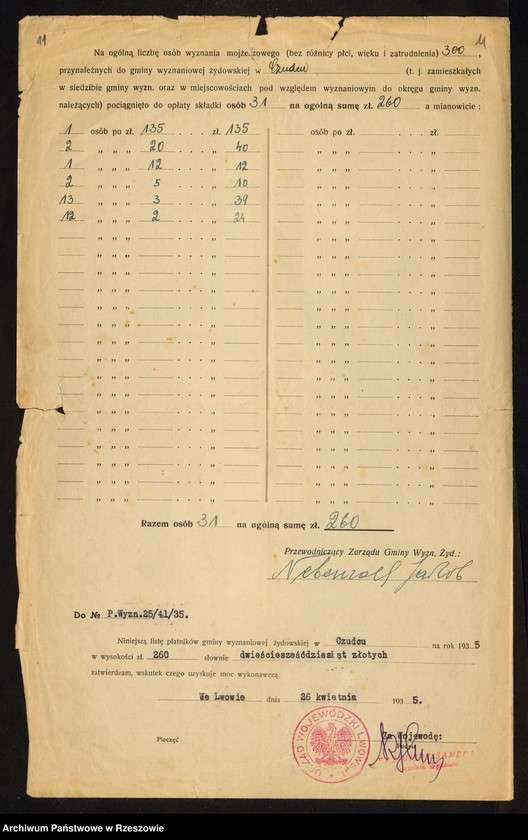 11
11
Na ogólną liczbę osób wyznania mojżeszowego (bez różnicy płci, wieku i zatrudnienia) 300,
przynależnych do gminy wyznaniowej żydowskiej w Czudcu (t. j. zamieszkałych
w siedzibie gminy wyzn. oraz w miejscowościach pod względem wyznaniowym do okręgu gminy wyzn.
należących) pociągnięto do opłaty składki osób 31 na ogólną sumę zł. 260 a mianowicie:
1 osób po zł. 135 . . . zł. 135 osób po zł. . . . zł.
2 „ „ „ 20 . . . „ 40 „ „ „ . . . „
1 „ „ „ 12 . . . „ 12 „ „ „ . . . „
2 „ „ „ 5 . . . „ 10 „ „ „ . . . „
13 „ „ „ 3 . . . „ 39 „ „ „ . . . „
12 „ „ „ 2 . . . „ 24 „ „ „ . . . „
Razem osób 31 na ogólną sumę zł. 260
Przewodniczący Zarządu Gminy Wyzn. Żyd.:
Do № P.Wyzn.25/41/35.
Niniejszą listę płatników gminy wyznaniowej żydowskiej w Czudcu na rok 1935
w wysokości zł. 260 słownie dwieściesześćdziesiąt złotych
zatwierdzam, wskutek czego uzyskuje moc wykonawczą.
We Lwowie dnia 26 kwietnia 1935.
Pieczęć
Za Wojewodę:
URZĄD WOJEWÓDZKI LWOWSKI
Archiwum Państwowe w Rzeszowie